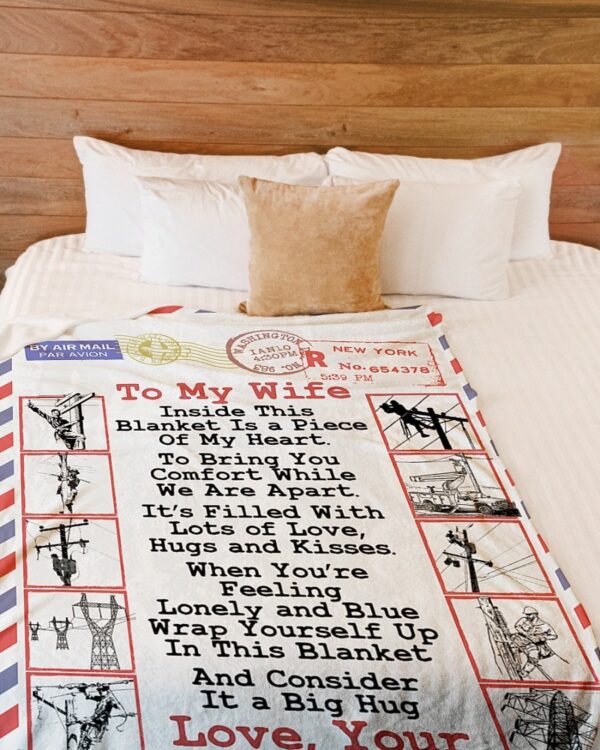 BY AIR MAIL
PAR AVION
WASHINGTON
4:30PM
R
NEW YORK
No. 654378
5:39 PM
To My Wife
Inside This
Blanket Is a Piece
Of My Heart.
To Bring You
Comfort While
We Are Apart.
It's Filled With
Lots of Love,
Hugs and Kisses.
When You're
Feeling
Lonely and Blue
Wrap Yourself Up
In This Blanket
And Consider
It a Big Hug
Love, Your